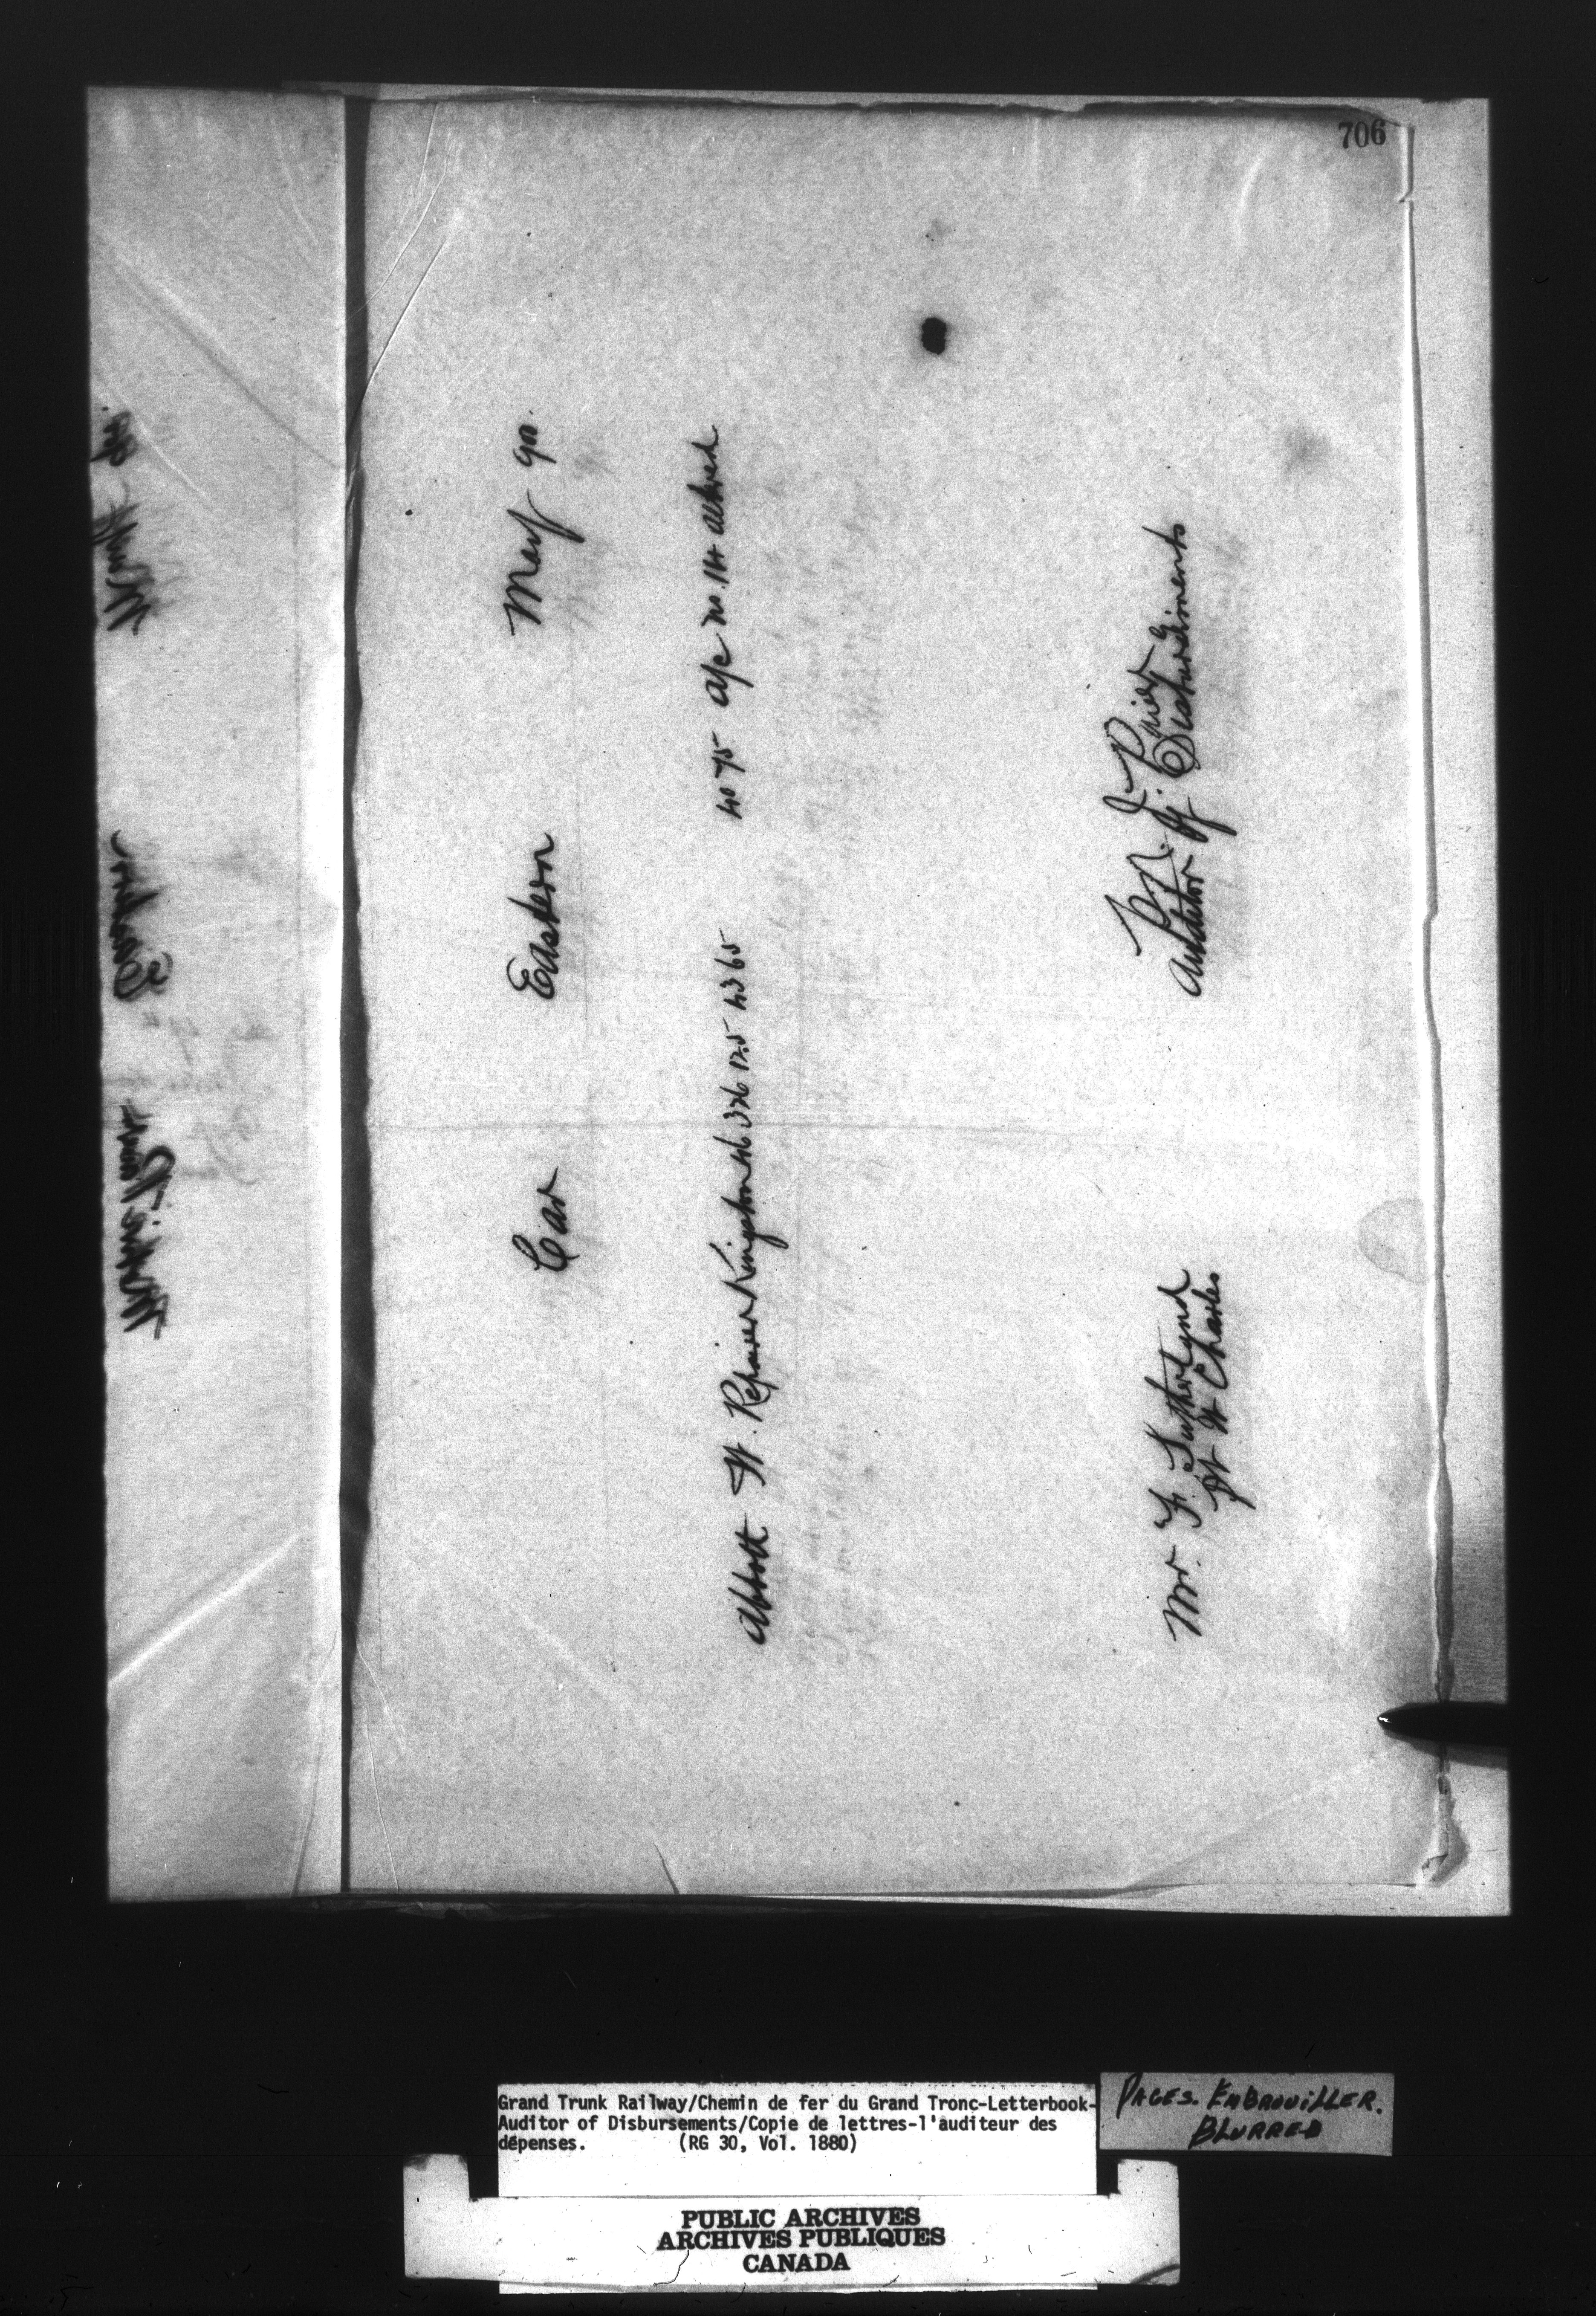 706
Car Eastern May 90.
Abbott W. Repairer Kingston 46 326 125 43 65 40 75 a/c no. 114 altered
Auditor of Disbursements
Mr. F. Sutherland
Pt St Charles
Grand Trunk Railway/Chemin de fer du Grand Tronc-Letterbook-
Auditor of Disbursements/Copie de lettres-l'auditeur des
dépenses. (RG 30, Vol. 1880)
PAGES. EMBROUILLER.
BLURRED
PUBLIC ARCHIVES
ARCHIVES PUBLIQUES
CANADA